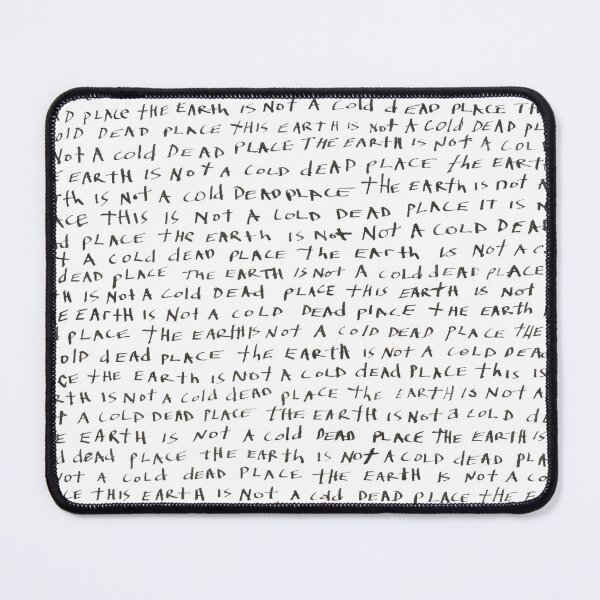 D PLACE THE EARTH IS NOT A COLD dEAD PLACE TH
OLD DEAD PLACE THIS EARTH IS NOT A COLD DEAD PL
NOT A COLD DEAD PLACE THE EARTH IS NOT A COL
E EARTH IS NOT A COLD dEAD PLACE the EART
th IS NOT A COLD DEAD PLACE tHE EARTH IS NOT A
ACE THIS IS NOT A COLD DEAD PLACE IT IS N
d PLACE THE EARTH IS NOT NOT A COLD DEA
t A COLD dEAD PLACE THE EARTH IS NOT A C
dEAD PLACE THE EARTH IS NOT A COLD dEAD PLACE
H IS NOT A COLD DEAD PLACE THIS EARTH IS NOT
E EARTH IS NOT A COLD DEAD PLACE THE EARTH
PLACE THE EARTH IS NOT A COLD DEAD PLACE THE
OLD dEAD PLACE the EARTH IS NOT A COLD DEAD
CE tHE EARTH IS NOT A COLD dEAD PLACE this IS
RTH IS NOT A COLD dEAD PLACE the EARTH IS NOT A
T A COLD DEAD PLACE THE EARTH IS NOT a COLD d
E EARTH IS NOT A COLD DEAD PLACE THE EARTH IS
d dEAD PLACE THE EARTH IS NOT A COLD DEAD PLA
NOT A COLD dEAD PLACE tHE EARTH IS NOT A CO
CE THIS EARTH IS NOT A COLD DEAD PLACE tHE E